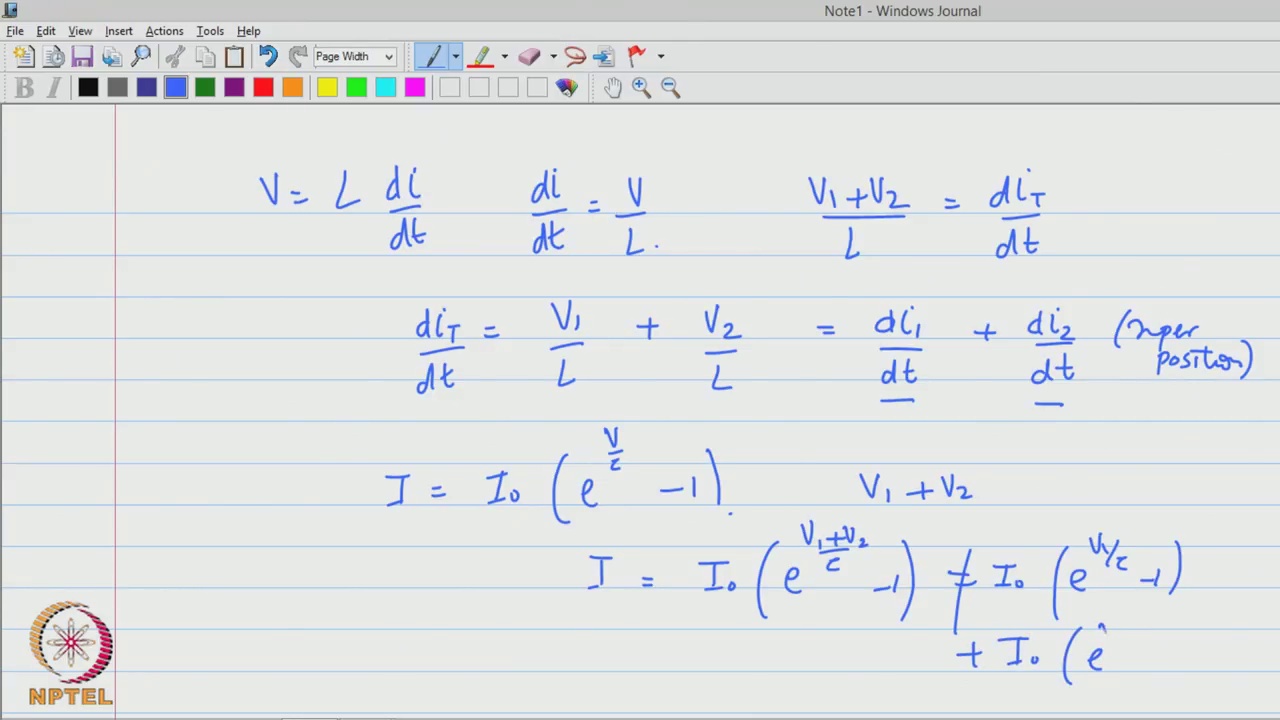 Note1 - Windows Journal
File Edit View Insert Actions Tools Help
Page Width
B I
V = L di/dt di/dt = V/L. V1+V2/L = diT/dt
diT/dt = V1/L + V2/L = di1/dt + di2/dt (super
position)
I = I0 (e^V/c -1). V1 + V2
I = I0 (e^V1+V2/c -1) ≠ I0 (e^V1/c -1)
+ I0 (e^
NPTEL